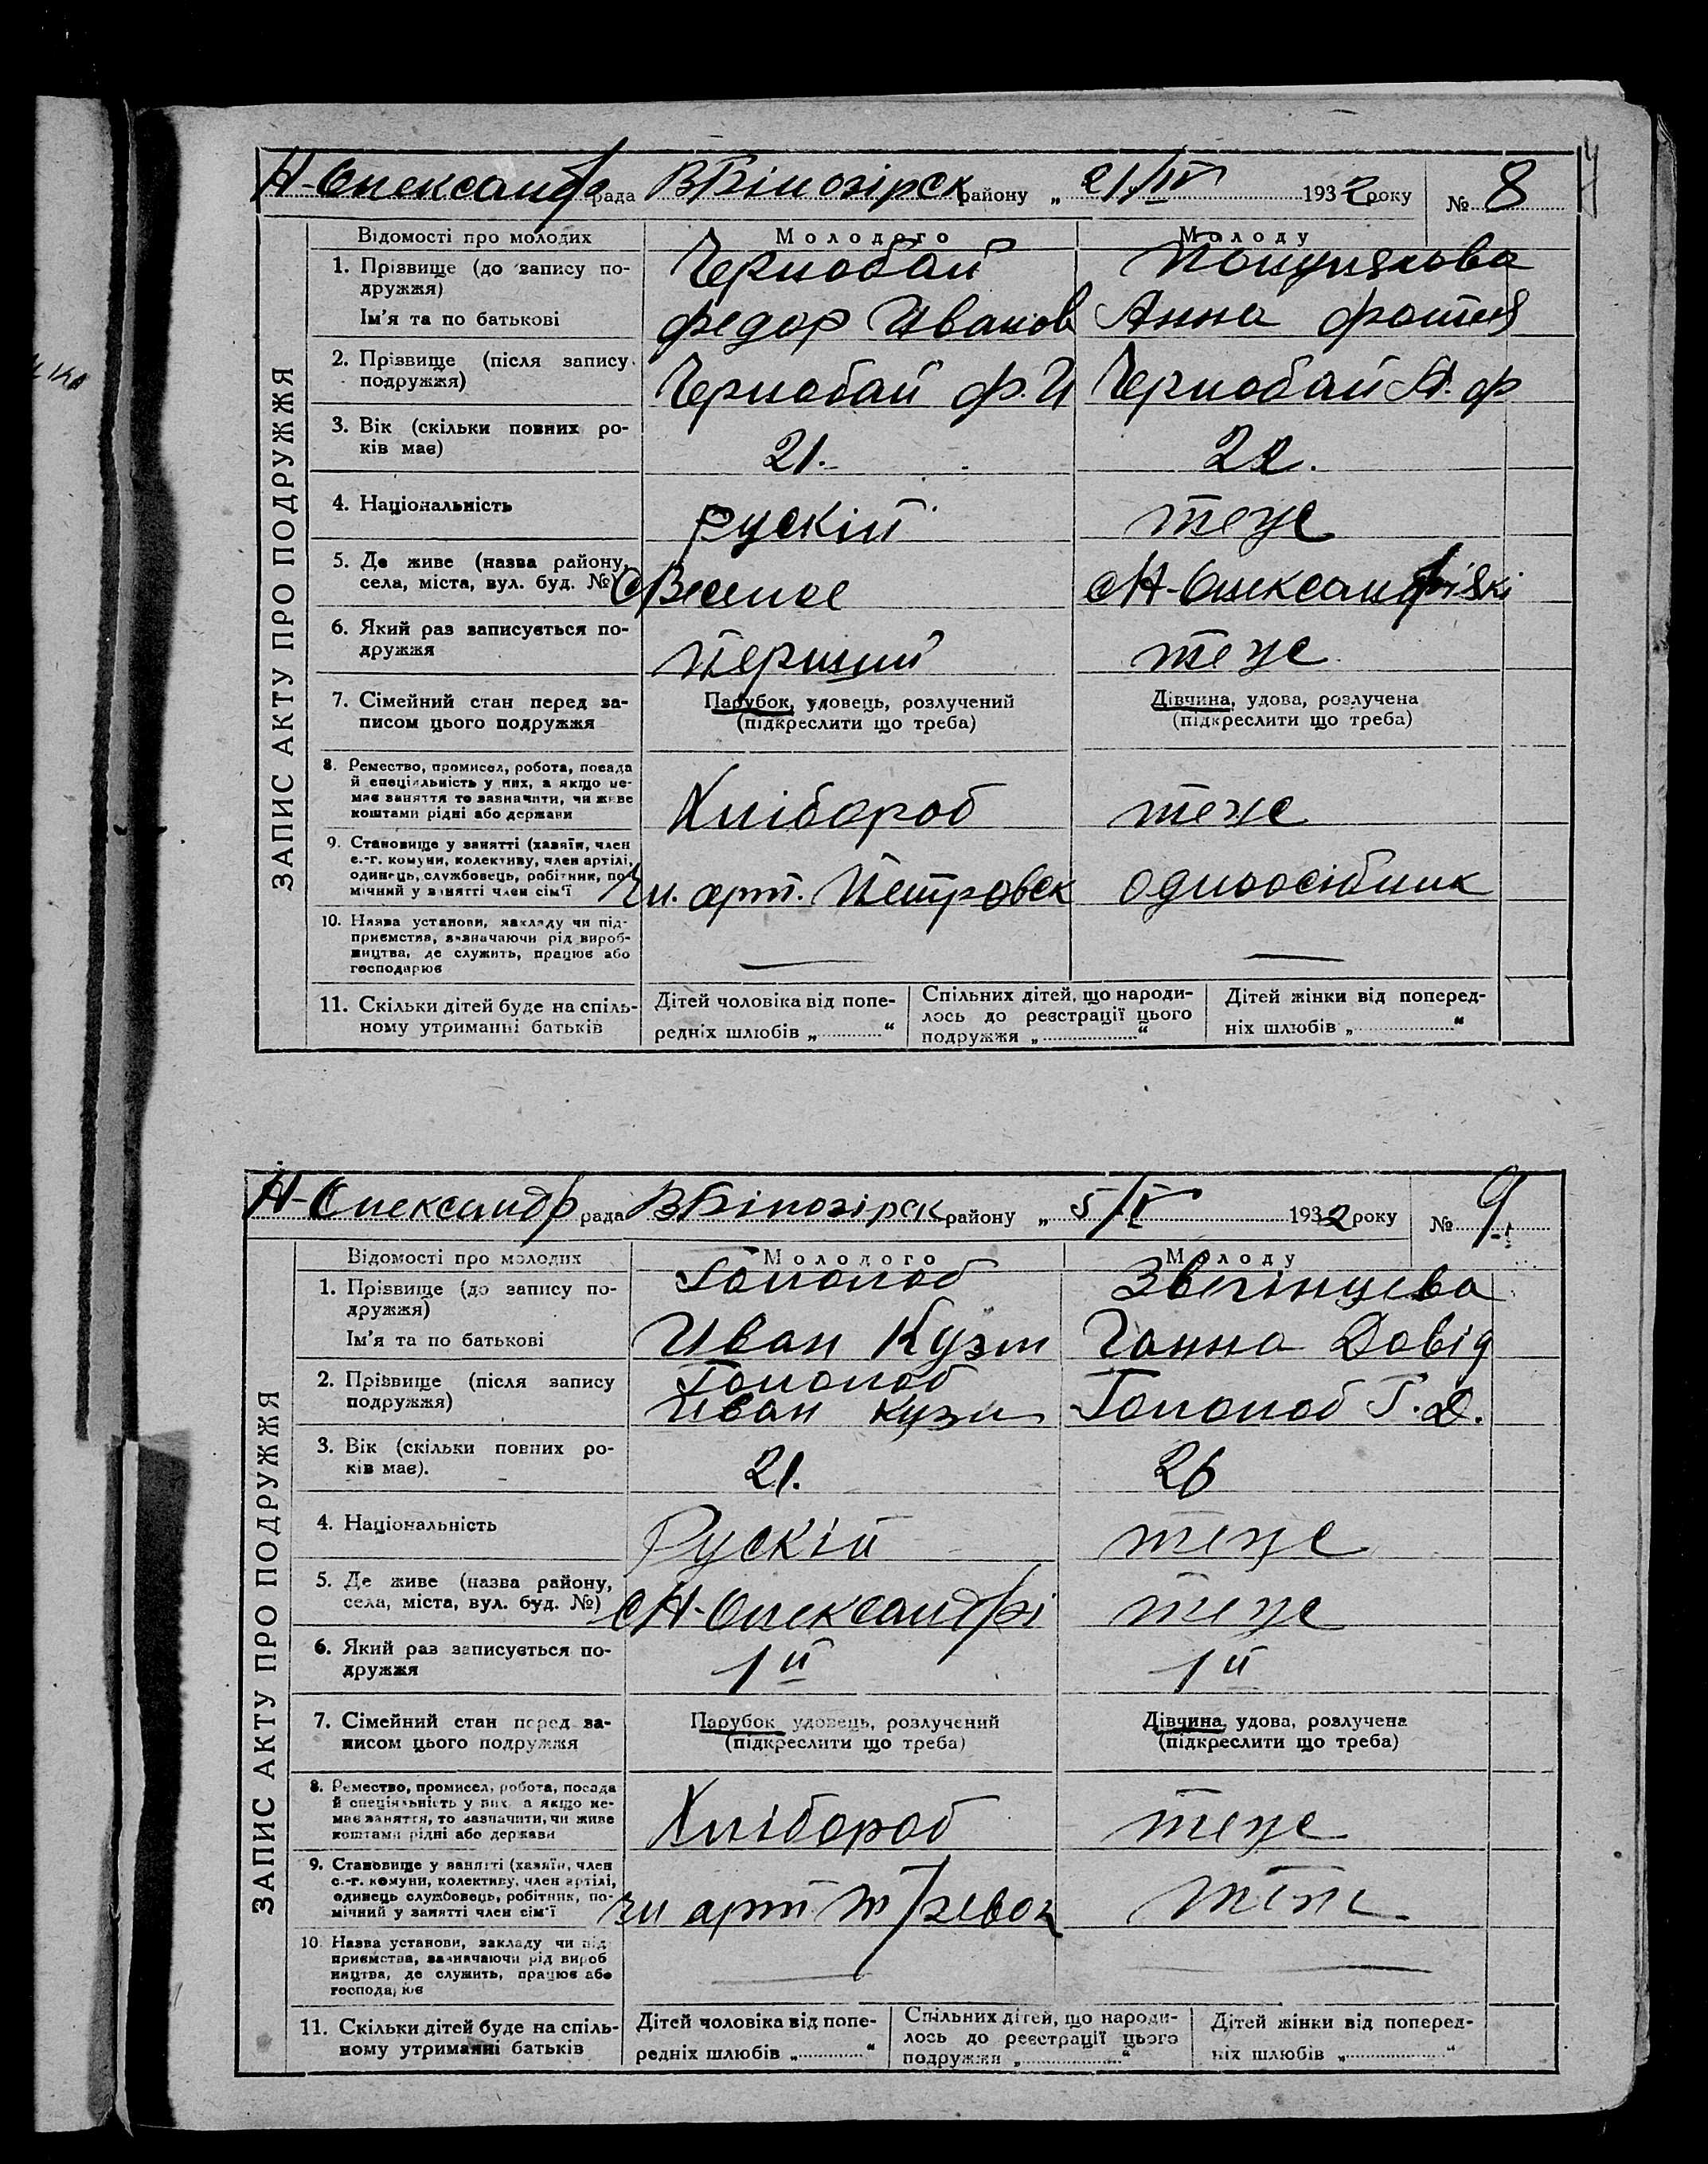 Н-Олександр рада ВБілозірск району „ 21/IV 1932 року № 8
Відомості про молодих
Молодого
Молоду
1. Прізвище (до запису подружжя)
Чернобай
Ім'я та по батькові
Федор Иванов
Анна Фотиев
2. Прізвище (після запису подружжя)
Чернобай Ф.И
Чернобай А.Ф
3. Вік (скільки повних років має)
21.
22.
4. Національність
рускій
теже
5. Де живе (назва району, села, міста, вул. буд. №)
с Веселое
с Н-Олександрівкі
6. Який раз записується подружжя
перший
теже
7. Сімейний стан перед записом цього подружжя
Парубок, удовець, розлучений
(підкреслити що треба)
Дівчина, удова, розлучена
(підкреслити що треба)
8. Ремество, промисел, робота, посада й спеціяльність у них, а якщо немає заняття то зазначити, чи живе коштами рідні або держави
Хлібороб
теже
9. Становище у занятті (хазяїн, член с.-г. комуни, колективу, член артілі, одинець, службовець, робітник, помічний у занятті член сім'ї
Чл. арт. Петровск
одноосібник
10. Назва установи, закладу чи підприємства, зазначаючи рід виробництва, де служить, працює або господарює
11. Скільки дітей буде на спільному утриманні батьків
Дітей чоловіка від попередніх шлюбів „ “
Спільних дітей, що народилось до реєстрації цього подружжя „ “
Дітей жінки від попередніх шлюбів „ “
ЗАПИС АКТУ ПРО ПОДРУЖЖЯ
Н-Олександр рада ВБілозірск району „ 5/V 1932 року № 9
Відомості про молодих
Молодого
Молоду
1. Прізвище (до запису подружжя)
Гололоб
Звегінцева
Ім'я та по батькові
Иван Кузм
Ганна Довід
2. Прізвище (після запису подружжя)
Гололоб
Иван Кузм
Гололоб Г.Д.
3. Вік (скільки повних років має).
21.
26
4. Національність
Рускій
теже
5. Де живе (назва району, села, міста, вул. буд. №)
с Н-Олександрі
теже
6. Який раз записується подружжя
1й
1й
7. Сімейний стан перед записом цього подружжя
Парубок удовець, розлучений
(підкреслити що треба)
Дівчина, удова, розлучена
(підкреслити що треба)
8. Ремество, промисел, робота, посада й спеціяльність у них, а якщо немає заняття, то зазначити, чи живе коштами рідні або держави
Хлібороб
теже
9. Становище у занятті (хазяїн, член с.-г. комуни, колективу, член артілі, одинець службовець, робітник, помічний у занятті член сім'ї
чл арт
теже
10. Назва установи, закладу чи підприємства, зазначаючи рід виробництва, де служить, працює або господарює
11. Скільки дітей буде на спільному утриманні батьків
Дітей чоловіка від попередніх шлюбів „ “
Спільних дітей, що народилось до реєстрації цього подружжя „ “
Дітей жінки від попередніх шлюбів „ “
ЗАПИС АКТУ ПРО ПОДРУЖЖЯ